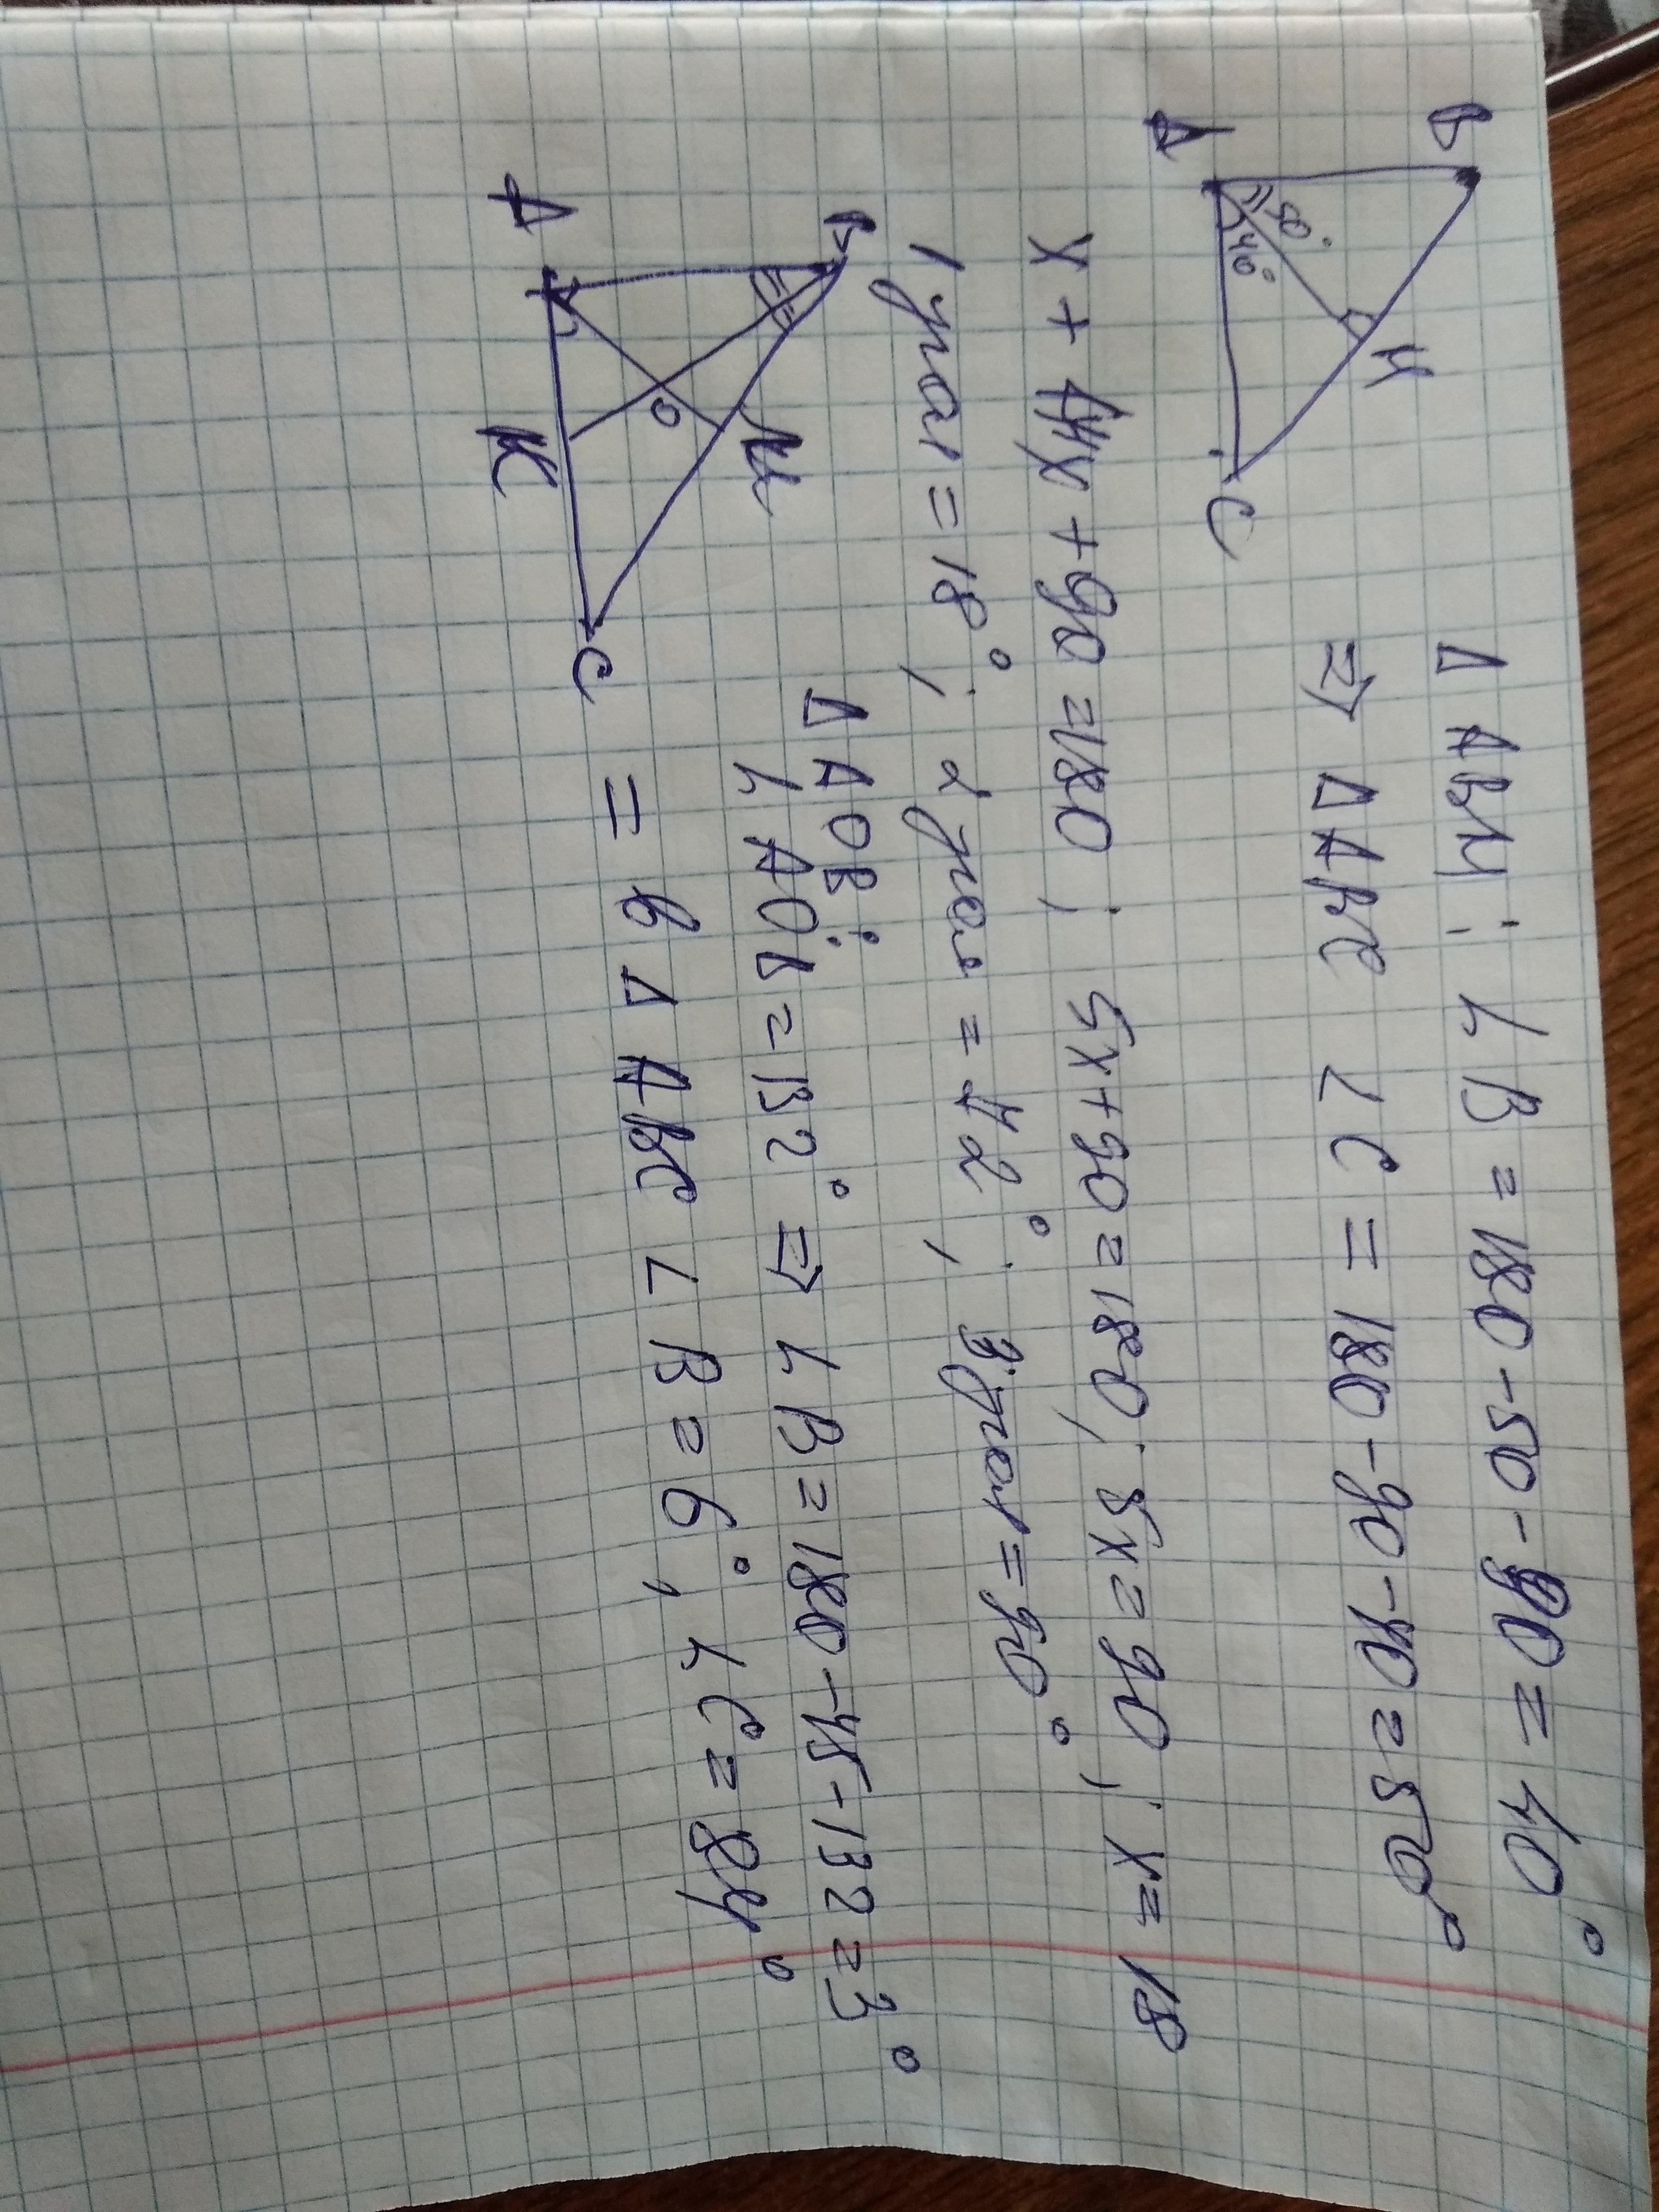 B
H
A
50°
40°
C
Δ ABH; ∠ B = 180 - 50 - 90 = 40°
⇒ Δ ABC ∠ C = 180 - 90 - 40 = 50°
x + 4x + 90 = 180; 5x + 90 = 180; 5x = 90; x = 18
1 угол = 18°; 2 угол = 42°; 3 угол = 90°
B
M
O
A
K
C
Δ AOB:
∠ AOB = 132° ⇒ ∠ B = 180 - 45 - 132 = 3°
= в Δ ABC ∠ B = 6°, ∠ C = 84°